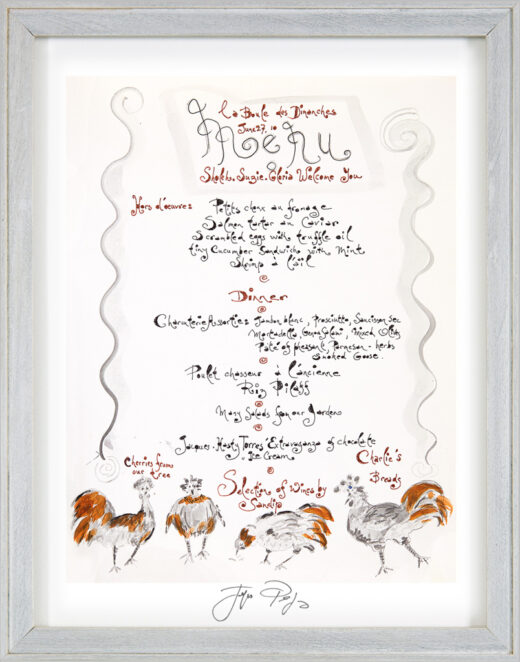 La Boule des Dimanches
June 27, 10
Menu
Sholeh. Suzie. Gloria Welcome You
Hors d'oeuvres
Petits choux au fromage
Salmon tartar au Caviar
Scrambled eggs with truffle oil
tiny Cucumber Sandwichs with Mint
Shrimp à l'ail
Dinner
Charcuterie Assorties Jambon blanc, Prosciutto, Saucisson sec
Mortadella, Mixed Olives
Pâté of pheasant, Parmesan-herbs
Smoked Goose
Poulet chasseur à l'ancienne
Riz Pilaff
Many Salads from our Gardens
Jacques-Hasty Torres' Extravaganza of chocolate
Ice Cream
Cherries from
our tree
Charlie's
Breads
Selection of Wines by
Sandip